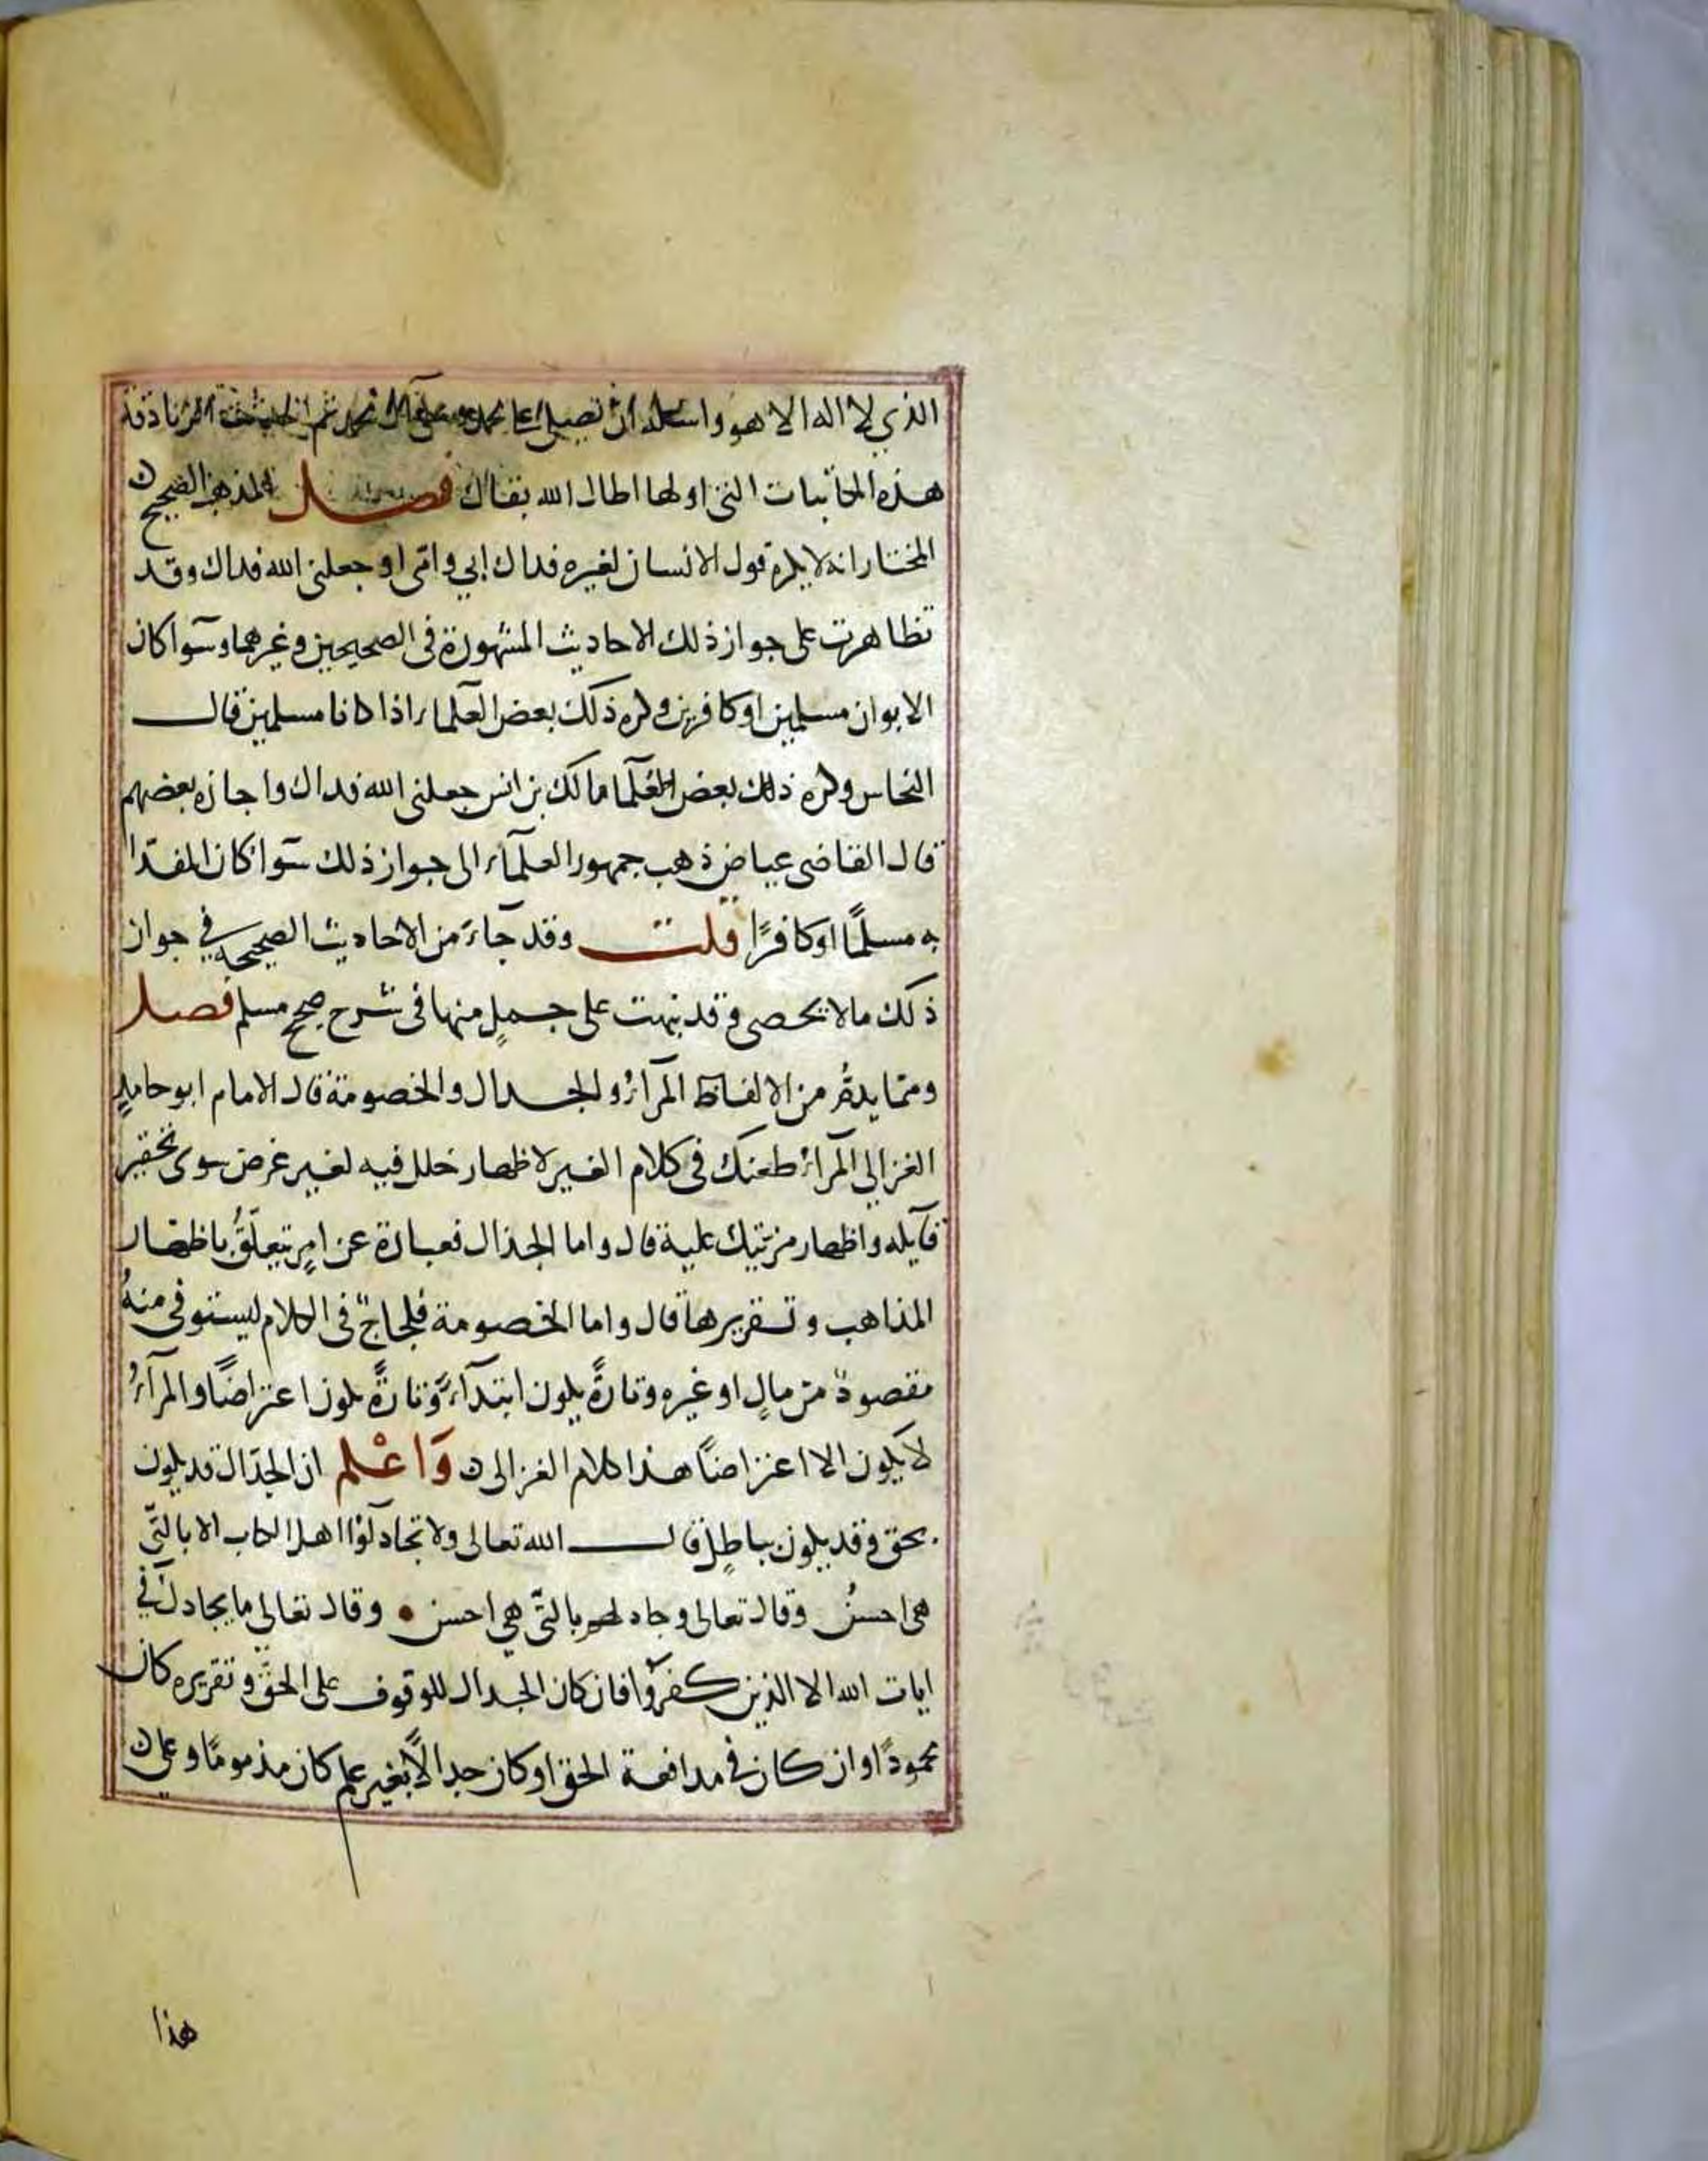 الذي لا اله الا هو واسله ان تصلي على محمد وعلى آل محمد ثم احدثت الزنادقة
هذه المكاتبات التي اولها اطال الله بقاك فصل المذهب الصحيح
المختار انه لا يكره قول الانسان لغيره فداك ابي وامي او جعلني الله فداك وقد
تظاهرت على جواز ذلك الاحاديث المشهورة في الصحيحين وغيرهما وسوا كان
الابوان مسلمين او كافرين وكره ذلك بعض العلماء اذا كانا مسلمين قال
النحاس وكره ذلك بعض العلما مالك بن انس جعلني الله فداك واجازه بعضهم
قال القاضي عياض ذهب جمهور العلمآء الى جواز ذلك سوا كان المفدا
به مسلمًا او كافرًا قلت وقد جآء من الاحاديث الصحيحة في جواز
ذلك ما لا يحصى وقد نبهت على جملٍ منها في شرح صحيح مسلم فصل
ومما يذمُّ من الالفاظ المرآءُ والجدال والخصومة قال الامام ابو حامدٍ
الغزالي المرآء طعنك في كلام الغير لاظهار خلل فيه لغير غرض سوى تحقير
قآيله واظهار مزيتك عليه قال واما الجدال فعبارة عن امرٍ يتعلّقُ باظهار
المذاهب وتقريرها قال واما الخصومة فلجاجٌ في الكلام ليستوفى منهُ
مقصودٌ من مالٍ او غيره وتارةً يكون ابتدآءً وتارةً يكون اعتراضًا والمرآءُ
لا يكون الا اعتراضًا هذا كلام الغزالي وَاعْلم ان الجدَال قد يكون
بحق وقد يكون بباطلٍ قال الله تعالى ولا تجادلوا اهل الكتاب الا بالتّي
هي احسنُ وقال تعالى وجادلهم بالتّي هي احسن • وقال تعالى ما يجادل في
ايات الله الا الذين كفروا فان كان الجدال للوقوف على الحقّ وتقريره كان
محمودًا وان كان في مدافعة الحق او كان جدالًا بغير علم كان مذمومًا وعلى
هذا